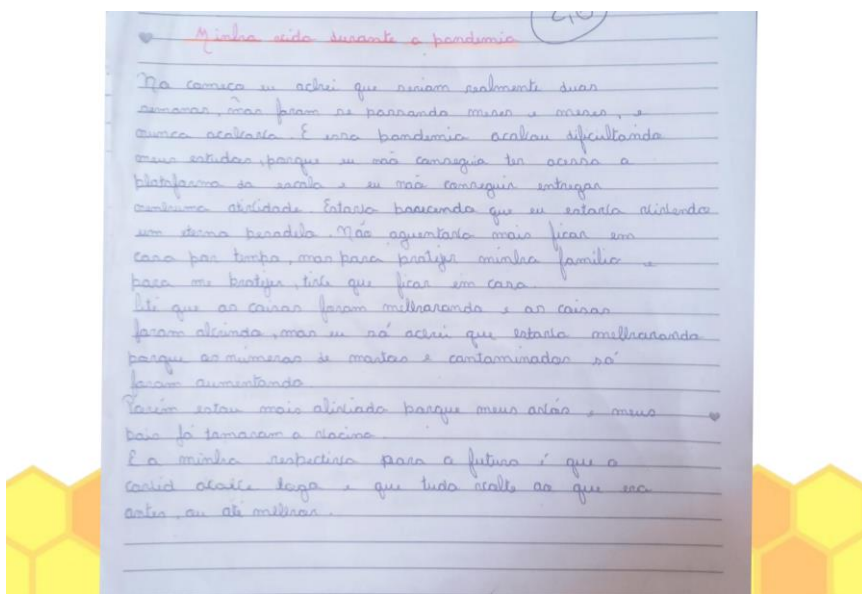 2,0
Minha vida durante a pandemia
No começo eu achei que seriam realmente duas
semanas, mas foram se passando meses e meses, e
nunca acabava. E essa pandemia acabou dificultando
meus estudos, porque eu não conseguia ter acesso a
plataforma da escola e eu não conseguia entregar
nenhuma atividade. Estava parecendo que eu estava vivendo
um eterno pesadelo. Não aguentava mais ficar em
casa por tempo, mas para proteger minha família e
para me proteger, tive que ficar em casa.
Até que as coisas foram melhorando e as coisas
foram abrindo, mas eu só achei que estava melhorando
porque os números de mortos e contaminados só
foram aumentando.
Porém estou mais aliviado porque meus avós e meus
pais já tomaram a vacina.
E a minha respectiva para o futuro é que o
covid acabe logo e que tudo volte ao que era
antes, ou até melhor.